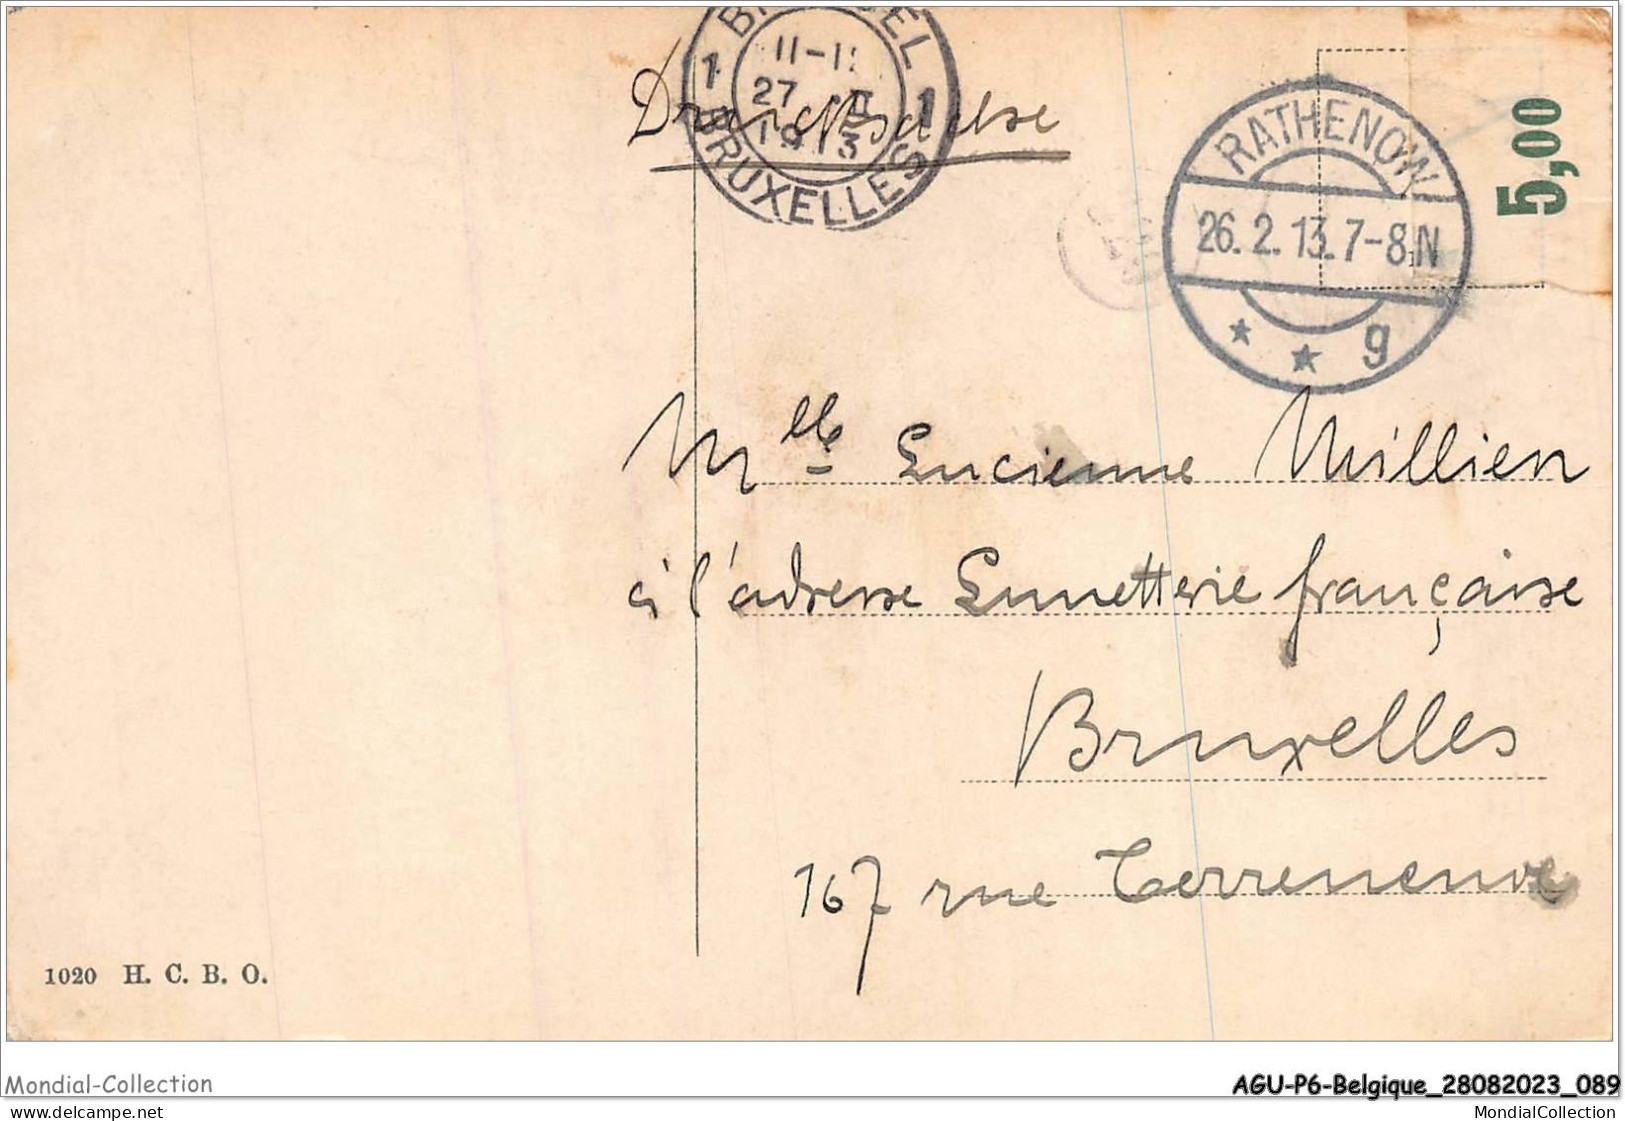 BRUSSEL
1 11-12 1
27 II
1913
BRUXELLES
Drucksache
RATHENOW
26. 2. 13. 7-8 N
* * g
5,00
Mlle Lucienne Millien
à l'adresse Lunetterie française
Bruxelles
167 rue Terreneuve
1020 H. C. B. O.
Mondial-Collection
AGU-P6-Belgique_28082023_089
delcampe.net
MondialCollection